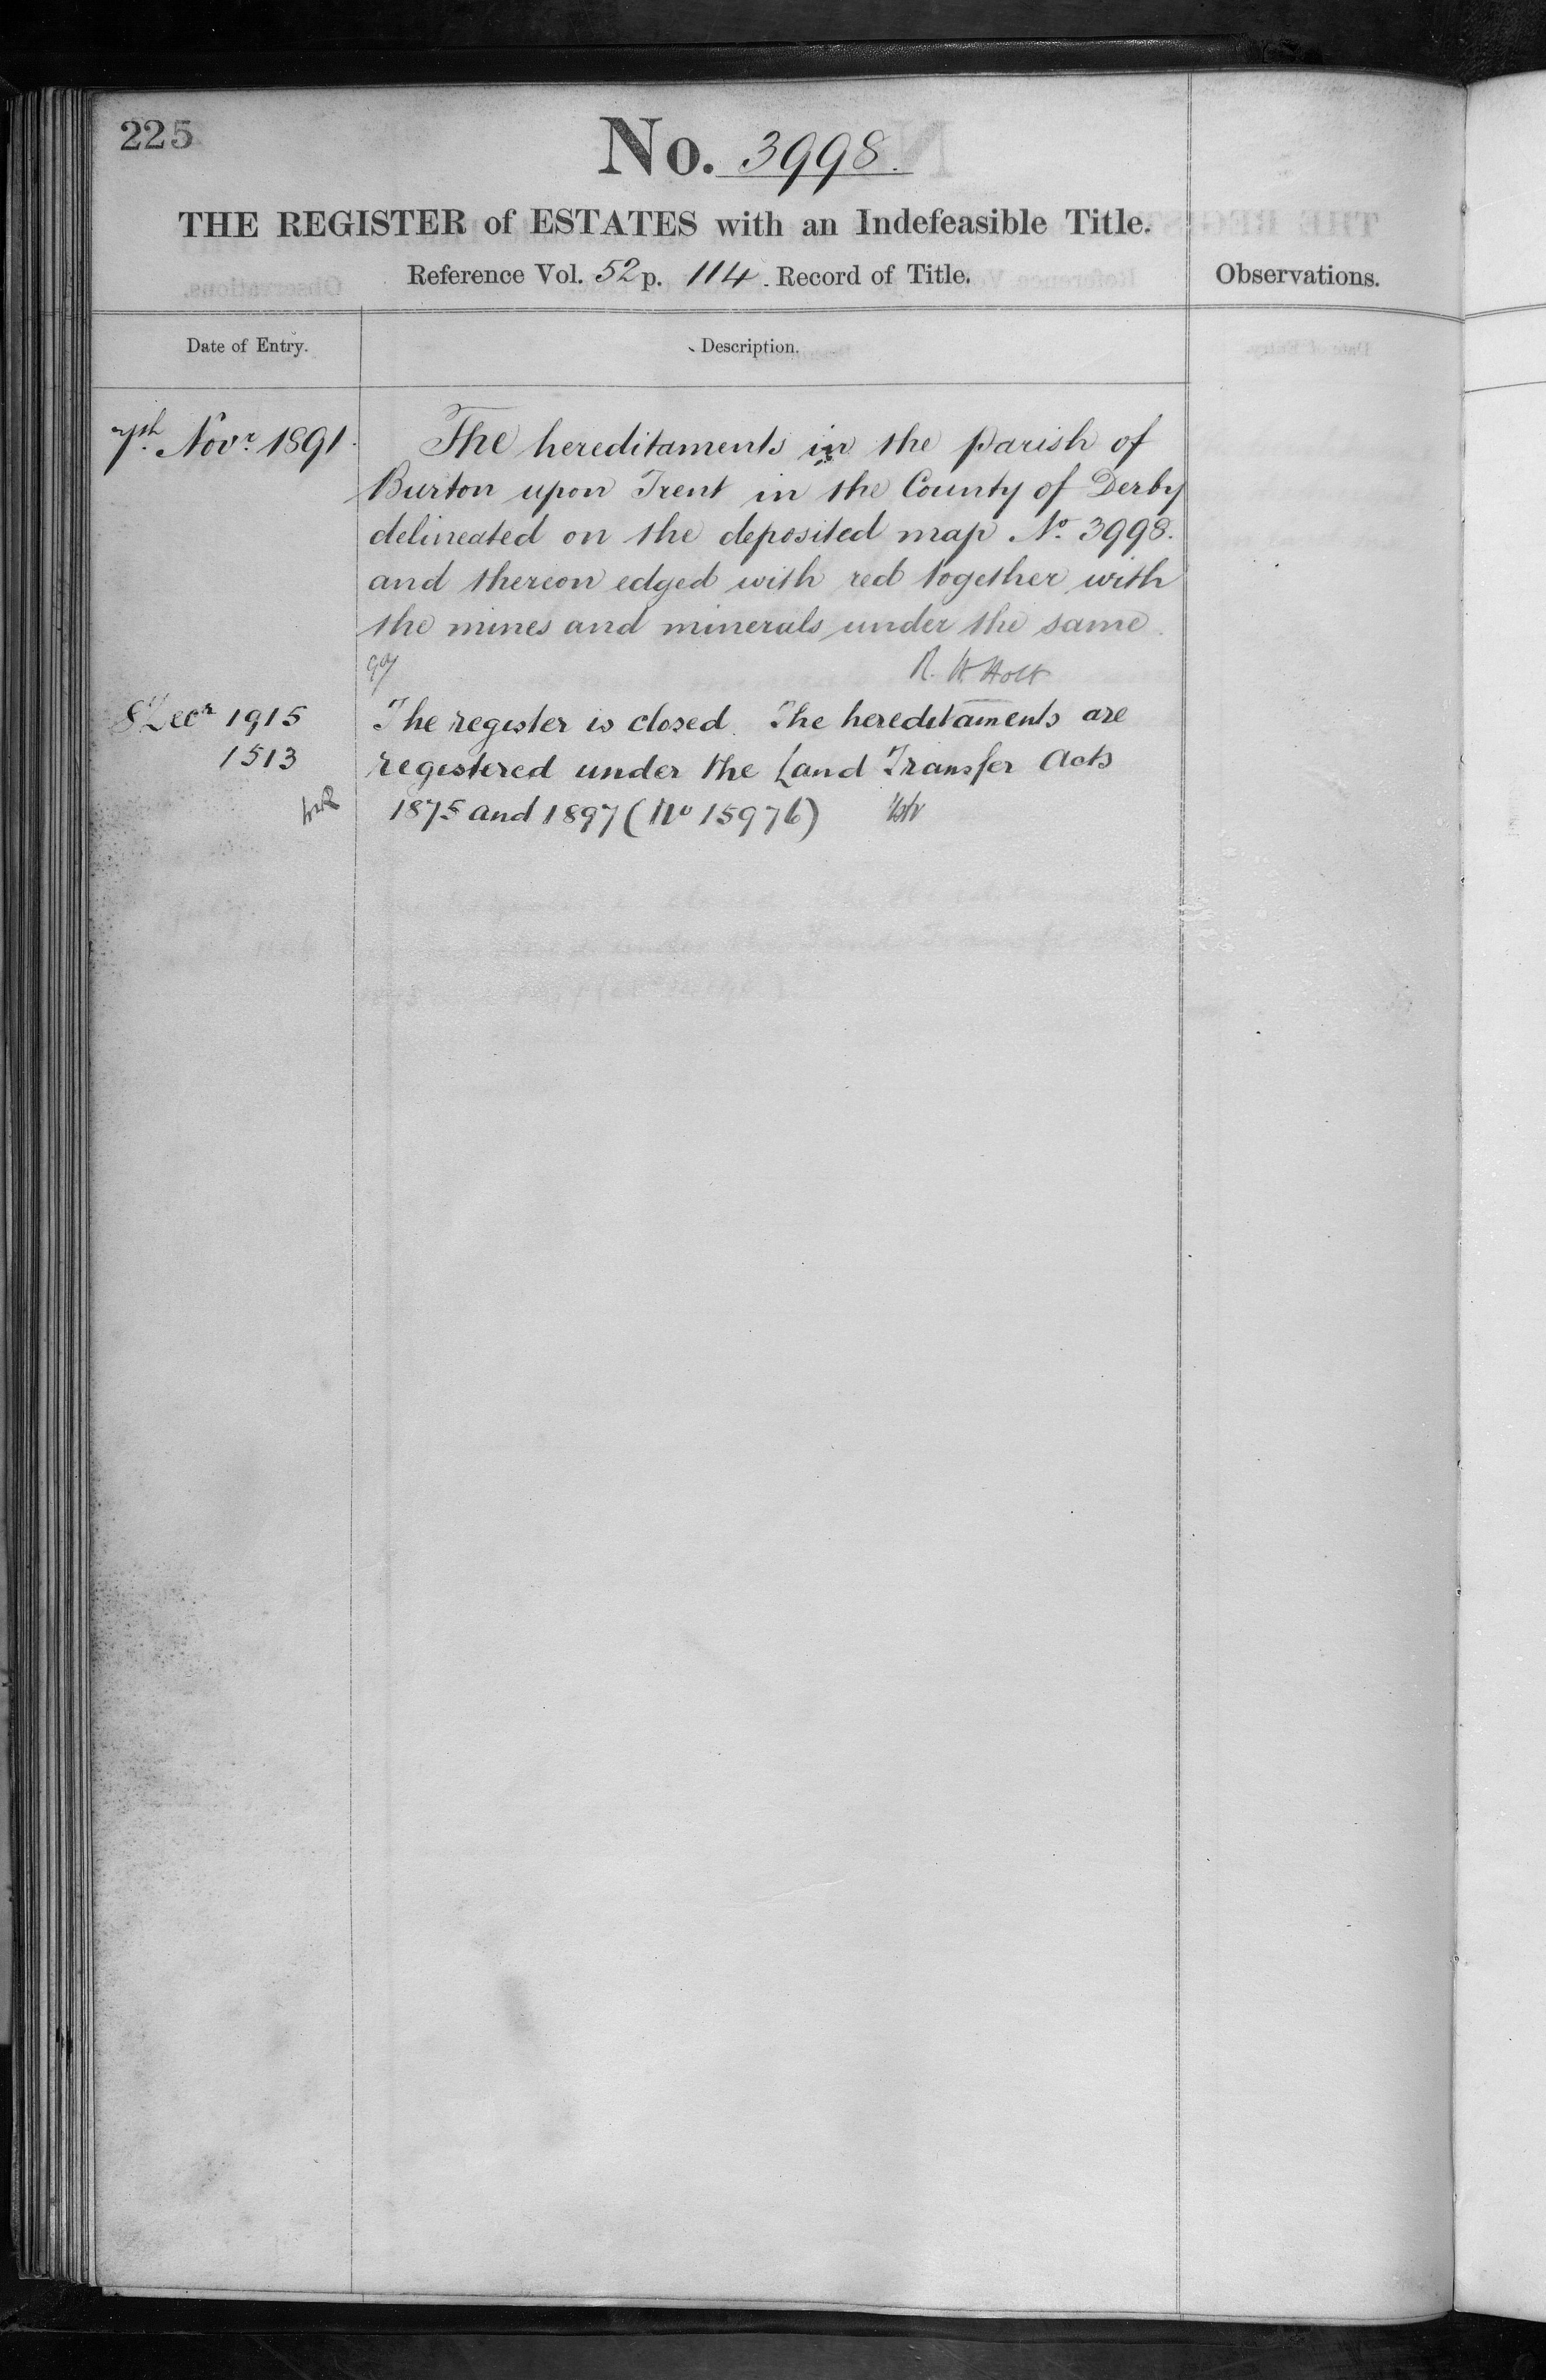 225
No. 3998.
THE REGISTER of ESTATES with an Indefeasible Title.
Reference Vol. 52 p. 114. Record of Title.
Observations.
Date of Entry.
Description.
7th Novr 1891.
The hereditaments in the parish of
Burton upon Trent in the County of Derby
delineated on the deposited map No 3998.
and thereon edged with red together with
the mines and minerals under the same.
R. H. Holt
8 Decr 1915
1513
The register is closed. The hereditaments are
registered under the Land Transfer Acts
1875 and 1897 (No 15976)